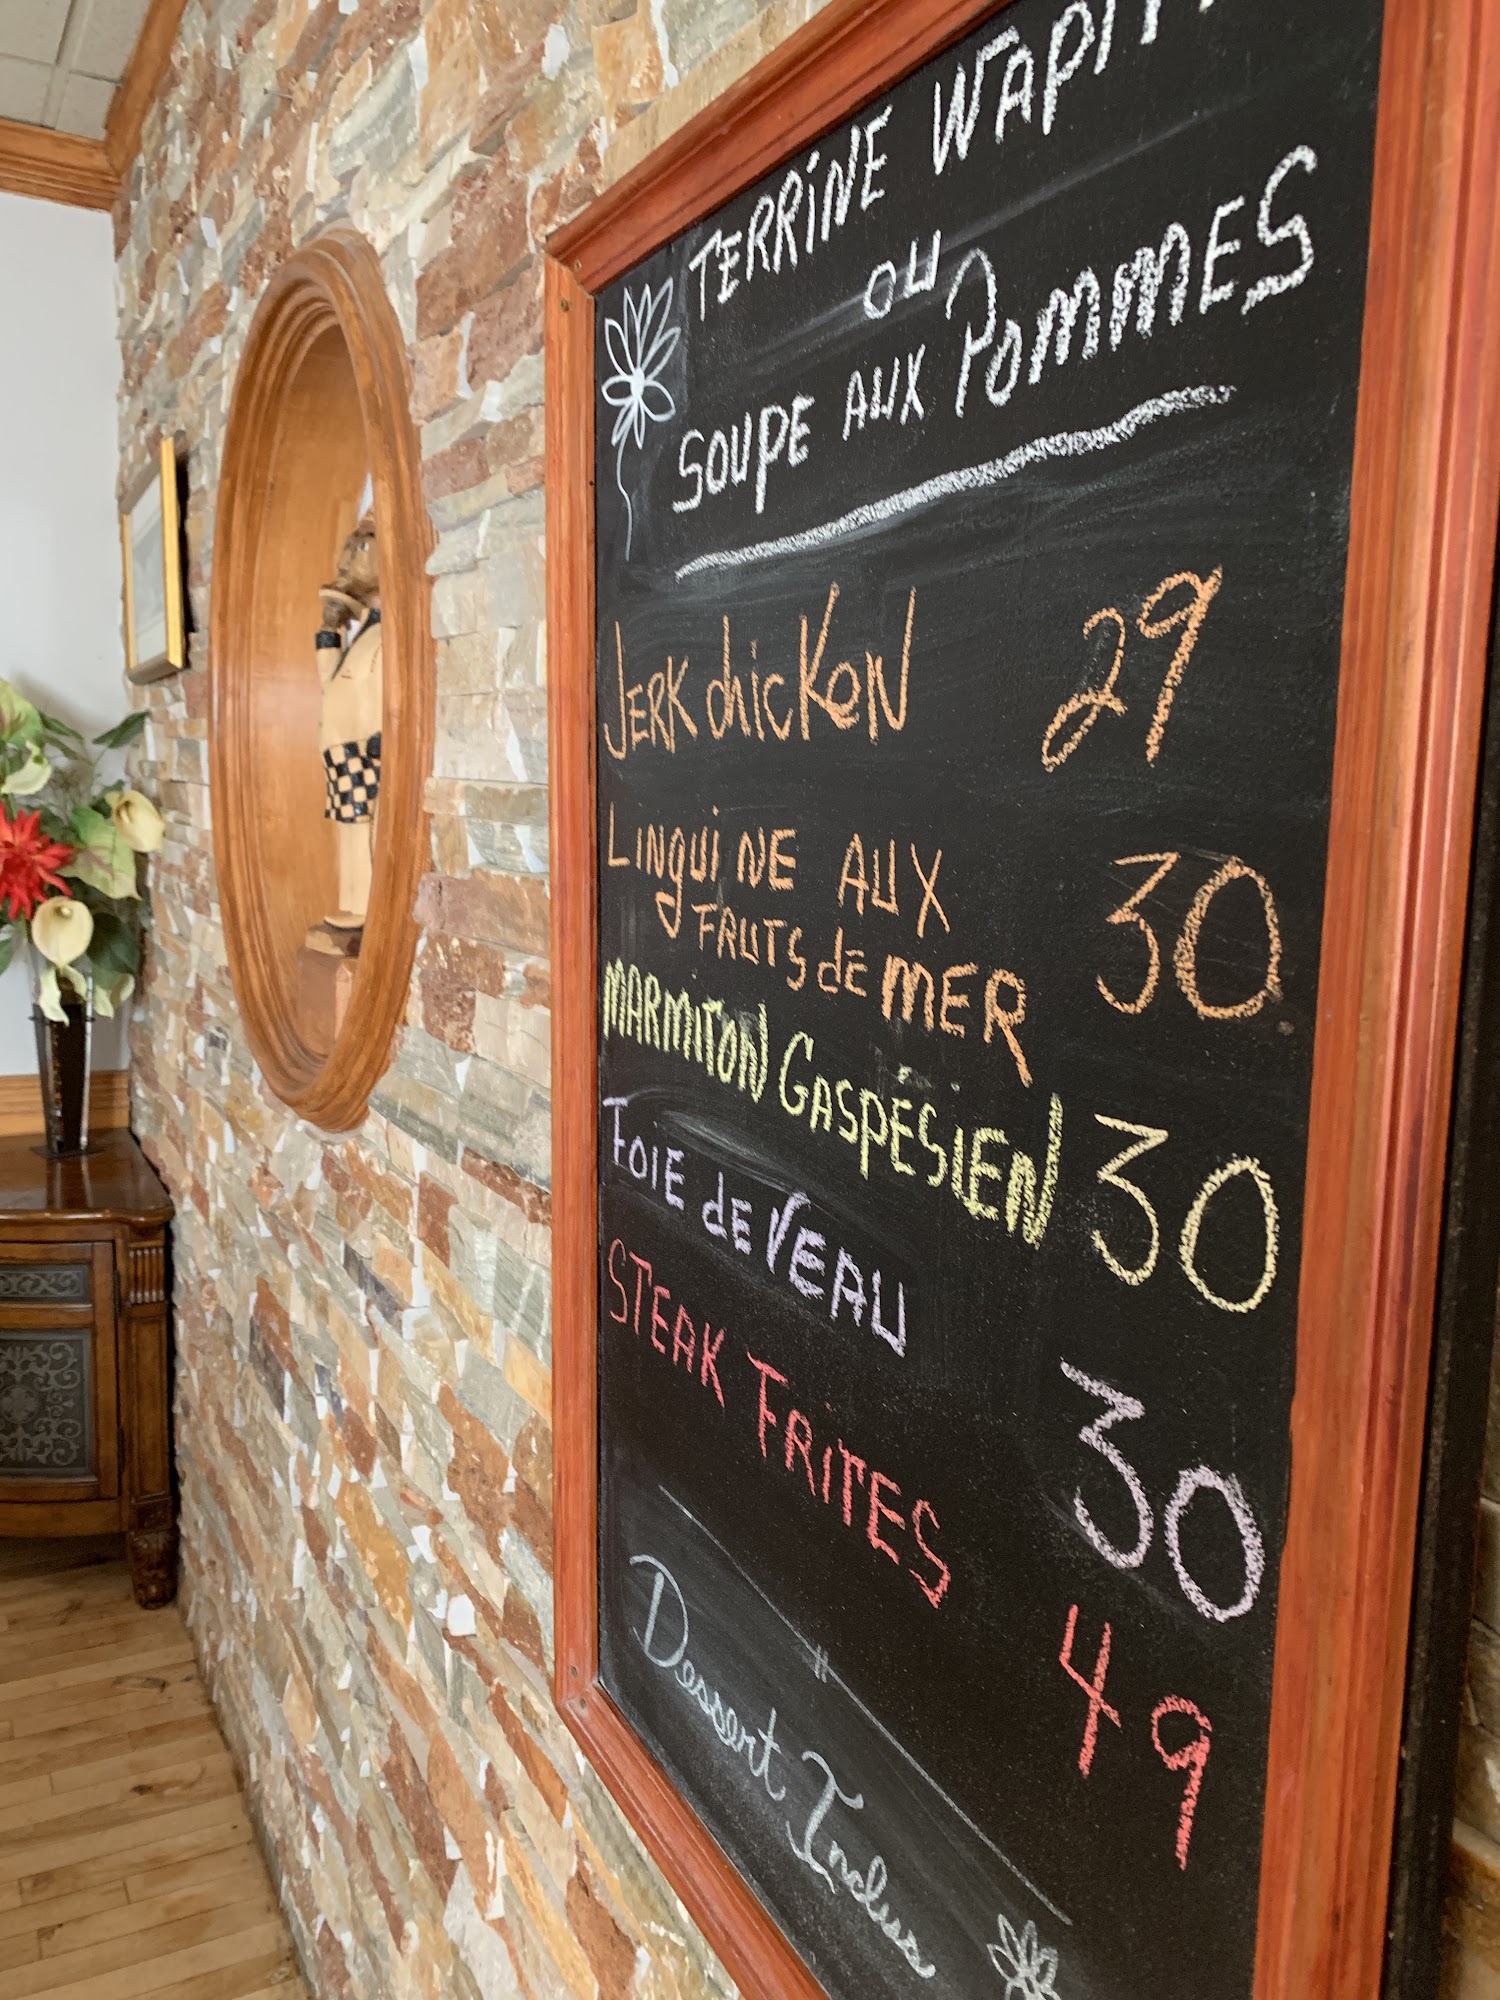 TERRINE WAPITI
OU
SOUPE AUX POMMES
JERK chicKeN 29
LINguiNE AUX
FRUTS de MER 30
MARMITON GASPÉSIEN 30
FOIE de VEAU 30
STEAK FRITES 49
Dessert Inclus